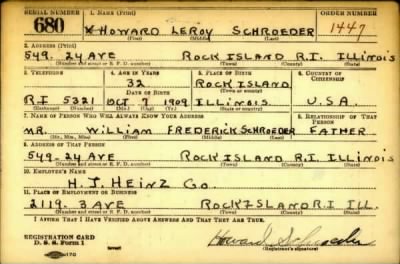 SERIAL NUMBER 1. NAME (Print) ORDER NUMBER
680 X HOWARD LEROY SCHROEDER 1447
(First) (Middle) (Last)
2. ADDRESS (Print)
549. 24 AVE ROCK ISLAND R.I. ILLINOIS
(Number and street or R. F. D. number) (Town) (County) (State)
3. TELEPHONE 4. AGE IN YEARS 5. PLACE OF BIRTH 6. COUNTRY OF CITIZENSHIP
32 ROCK ISLAND
DATE OF BIRTH (Town or county)
R.I 5321 OCT 7 1909 ILLINOIS U.S.A.
(Exchange) (Number) (Mo.) (Day) (Yr.) (State or country)
7. NAME OF PERSON WHO WILL ALWAYS KNOW YOUR ADDRESS 8. RELATIONSHIP OF THAT PERSON
MR. WILLIAM FREDERICK SCHROEDER FATHER
(Mr., Mrs., Miss) (First) (Middle) (Last)
9. ADDRESS OF THAT PERSON
549-24 AVE ROCK ISLAND R.I. ILLINOIS
(Number and street or R. F. D. number) (Town) (County) (State)
10. EMPLOYER'S NAME
H. J. HEINZ CO.
11. PLACE OF EMPLOYMENT OR BUSINESS
2119. 3 AVE ROCK ISLAND R.I. ILL.
(Number and street or R. F. D. number) (Town) (County) (State)
I AFFIRM THAT I HAVE VERIFIED ABOVE ANSWERS AND THAT THEY ARE TRUE.
REGISTRATION CARD
D. S. S. Form 1 (over) Howard L Schroeder
(Registrant's signature)